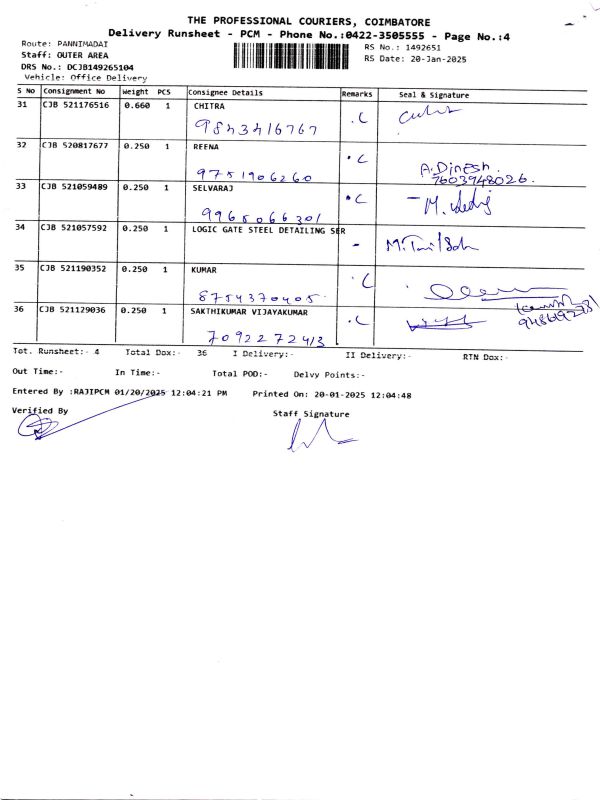 THE PROFESSIONAL COURIERS, COIMBATORE
Delivery Runsheet - PCM - Phone No.:0422-3505555 - Page No.:4
Route: PANNIMADAI RS No.: 1492651
Staff: OUTER AREA RS Date: 20-Jan-2025
DRS No.: DCJB149265104
Vehicle: Office Delivery
S No Consignment No Weight PCS Consignee Details Remarks Seal & Signature
31 CJB 521176516 0.660 1 CHITRA
9843416767 .C
32 CJB 520817677 0.250 1 REENA
9751906260 .C A.Dinesh.
7603948026.
33 CJB 521059489 0.250 1 SELVARAJ
9965066301 .C
34 CJB 521057592 0.250 1 LOGIC GATE STEEL DETAILING SER
-
35 CJB 521190352 0.250 1 KUMAR
8754370405. .C
36 CJB 521129036 0.250 1 SAKTHIKUMAR VIJAYAKUMAR
7092272413 .C
Tot. Runsheet:- 4 Total Dox:- 36 I Delivery:- II Delivery:- RTN Dox:-
Out Time:- In Time:- Total POD:- Delvy Points:-
Entered By :RAJIPCM 01/20/2025 12:04:21 PM Printed On: 20-01-2025 12:04:48
Verified By Staff Signature